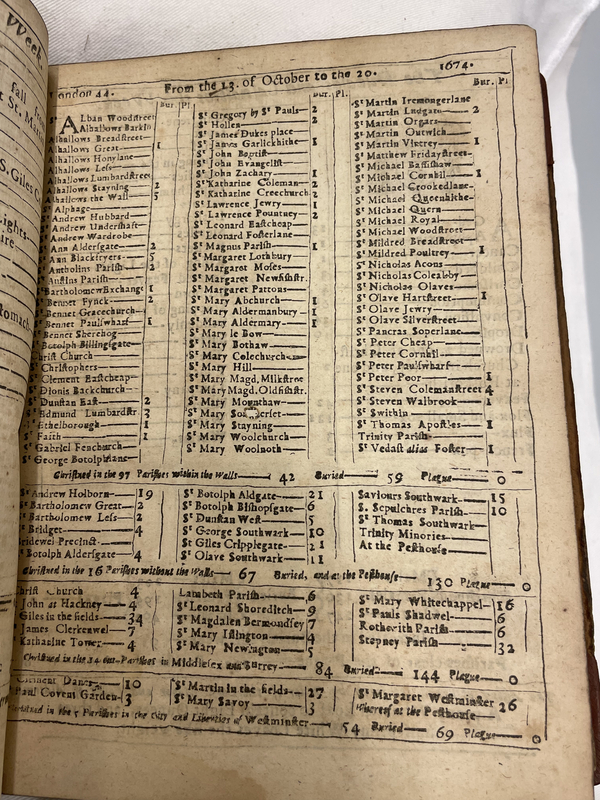 VVeek,
fall from
St. Mart
S. Giles C
ights
ure
tomach
London 44. From the 13. of October to the 20. 1674.
Bur. Pl.
St Alban Woodstreet
Alhallows Barkin
Alhallows Breadstreet
Alhallows Great 1
Alhallows Honylane
Alhallows Less
Alhallows Lumbardstreet
Alhallows Stayning 2
Alhallows the Wall 5
St Alphage
St Andrew Hubbard
St Andrew Undershaft
St Andrew Wardrobe
St Ann Aldersgate 2
St Ann Blackfryers 5
St Antholins Parish 2
St Austins Parish
St Bartholomew Exchange 1
St Bennet Fynck 2
St Bennet Gracechurch
St Bennet Paulswharf 1
St Bennet Sherehog
St Botolph Billingsgate
Christ Church
St Christophers
St Clement Eastcheap
St Dionis Backchurch
St Dunstan East 2
St Edmund Lumbardstr 3
St Ethelborough 1
St Faith 1
St Gabriel Fenchurch
St George Botolphlane
Bur. Pl.
St Gregory by St Pauls 2
St Hollen 2
St James Dukes place
St James Garlickhithe 1
St John Baptist
St John Evangelist
St John Zachary 1
St Katharine Coleman 2
St Katharine Creechurch 2
St Lawrence Jewry 1
St Lawrence Pountney 2
St Leonard Eastcheap
St Leonard Fosterlane
St Magnus Parish 1
St Margaret Lothbury
St Margaret Moses
St Margaret Newfishstr.
St Margaret Pattons
St Mary Abchurch 1
St Mary Aldermanbury 1
St Mary Aldermary 1
St Mary le Bow
St Mary Bothaw
St Mary Colechurch
St Mary Hill
St Mary Magd. Milkstree
St Mary Magd. Oldfishstr.
St Mary Mounthaw
St Mary Somerset
St Mary Stayning
St Mary Woolchurch
St Mary Woolnoth
Bur. Pl.
St Martin Iremongerlane
St Martin Ludgate 2
St Martin Orgars
St Martin Outwich
St Martin Vintrey 1
St Matthew Fridaystreet
St Michael Bassishaw
St Michael Cornhil 1
St Michael Crookedlane
St Michael Queenhithe
St Michael Quern
St Michael Royal
St Michael Woodstreet
St Mildred Breadstreet
St Mildred Poultrey 1
St Nicholas Acons
St Nicholas Coleabby
St Nicholas Olaves
St Olave Hartstreet 1
St Olave Jewry
St Olave Silverstreet
St Pancras Soperlane
St Peter Cheap
St Peter Cornhil
St Peter Paulswharf
St Peter Poor 1
St Steven Colemanstreet 4
St Steven Walbrook 1
St Swithin
St Thomas Apostles 1
Trinity Parish
St Vedast alias Foster 1
Christned in the 97 Parishes within the Walls 42 Buried 59 Plague 0
St Andrew Holborn 19
St Bartholomew Great 2
St Bartholomew Less 2
St Bridget 4
Bridewel Precinct
St Botolph Aldersgate 4
St Botolph Aldgate 21
St Botolph Bishopsgate 6
St Dunstan West 5
St George Southwark 10
St Giles Cripplegate 21
St Olave Southwark 11
Saviours Southwark 15
S. Sepulchres Parish 10
St Thomas Southwark
Trinity Minories
At the Pesthouse
Christned in the 16 Parishes without the Walls 67 Buried, and at the Pesthouse 130 Plague 0
Christ Church 4
John at Hackney 4
Giles in the fields 34
James Clerkenwel 7
Katharine Tower 4
Lambeth Parish 6
St Leonard Shoredtech 9
St Magdalen Bermondsey 7
St Mary Islington 4
St Mary Newington 5
St Mary Whitechappel 16
St Pauls Shadwel 6
Rotherith Parish 6
Stepney Parish 32
Christned in the 14 out-Parishes in Middlesex and Surrey 84 Buried 144 Plague 0
Clement Danes 10
Paul Covent Garden 3
St Martin in the fields 27
St Mary Savoy 3
St Margaret Westminster 26
Whereof at the Pesthouse
Christned in the 5 Parishes in the City and Liberties of Westminster 54 Buried 69 Plague 0